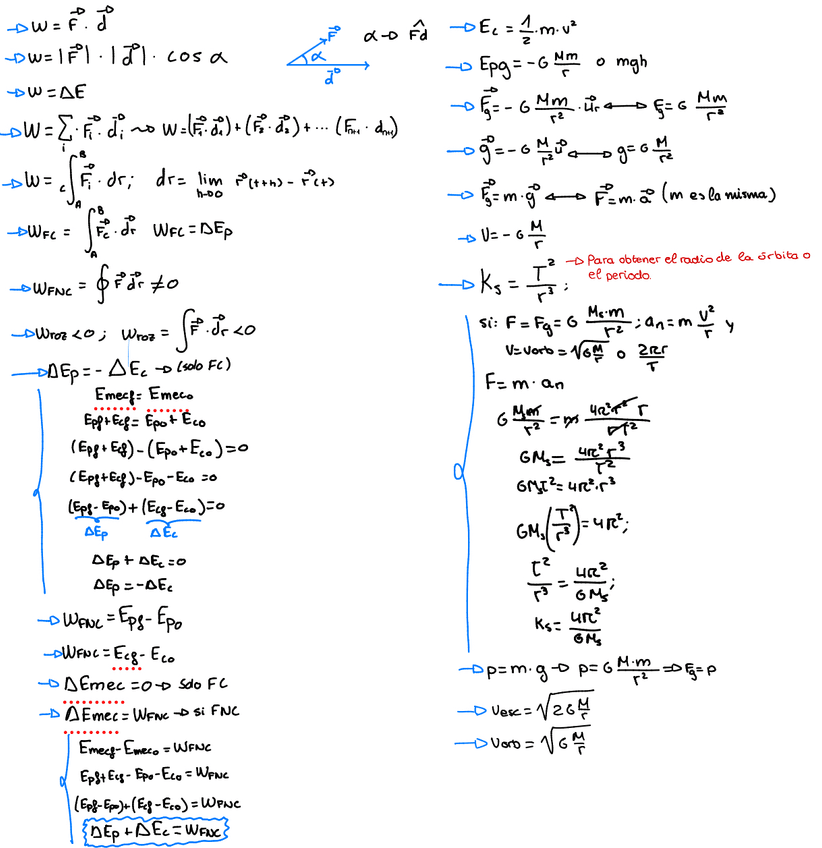 → W = F⃗ · d⃗
→ W = |F⃗| · |d⃗| · cos α
F⃗ α d⃗
α → F̂d
→ W = ΔE
→ W = Σᵢ · F⃗ᵢ · d⃗ᵢ ⤳ W = (F⃗₁·d⃗₁) + (F⃗₂·d⃗₂) + ... (Fₙ₊₁ · dₙ₊₁)
→ W = c∫_A^B F⃗ᵢ · dr; dr = lim_{h→0} r⃗(t+h) - r⃗(t)
→ W_FC = ∫_A^B F⃗c · d⃗r W_FC = ΔEp
→ W_FNC = ∮ F⃗ d⃗r ≠ 0
→ Wroz < 0; Wroz = ∫ F⃗ · d⃗r < 0
→ ΔEp = - ΔEc → (solo FC)
Emecf = Emeco
Epf + Ecf = Epo + Eco
(Epf + Ecf) - (Epo + Eco) = 0
(Epf + Ecf) - Epo - Eco = 0
(Epf - Epo) + (Ecf - Eco) = 0
ΔEp ΔEc
ΔEp + ΔEc = 0
ΔEp = -ΔEc
→ W_FNC = Epf - Epo
→ W_FNC = Ecf - Eco
→ ΔEmec = 0 → solo FC
→ ΔEmec = W_FNC → si FNC
Emecf - Emeco = W_FNC
Epf + Ecf - Epo - Eco = W_FNC
(Epf - Epo) + (Ecf - Eco) = W_FNC
ΔEp + ΔEc = W_FNC
→ Ec = 1/2 · m · v²
→ Epg = -G Mm/r o mgh
→ F⃗g = -G Mm/r² · u⃗r ↔ Fg = G Mm/r²
→ g⃗ = -G M/r² u⃗ ↔ g = G M/r²
→ F⃗g = m · g⃗ ↔ F⃗ = m · a⃗ (m es la misma)
→ V = -G M/r
→ Ks = T²/r³;
→ Para obtener el radio de la órbita o
el periodo.
si: F = Fg = G Ms·m/r²; an = m v²/r y
V = Vorb = √(G M/r) o 2πr/T
F = m · an
G Msm/r² = m 4π²r² r/r²T²
GMs = 4π²r³/T²
GMsT² = 4π² · r³
GMs(T²/r³) = 4π²;
T²/r³ = 4π²/GMs;
Ks = 4π²/GMs
→ p = m · g → p = G M·m/r² ⇒ Fg = p
→ Vesc = √(2G M/r)
→ Vorb = √(G M/r)